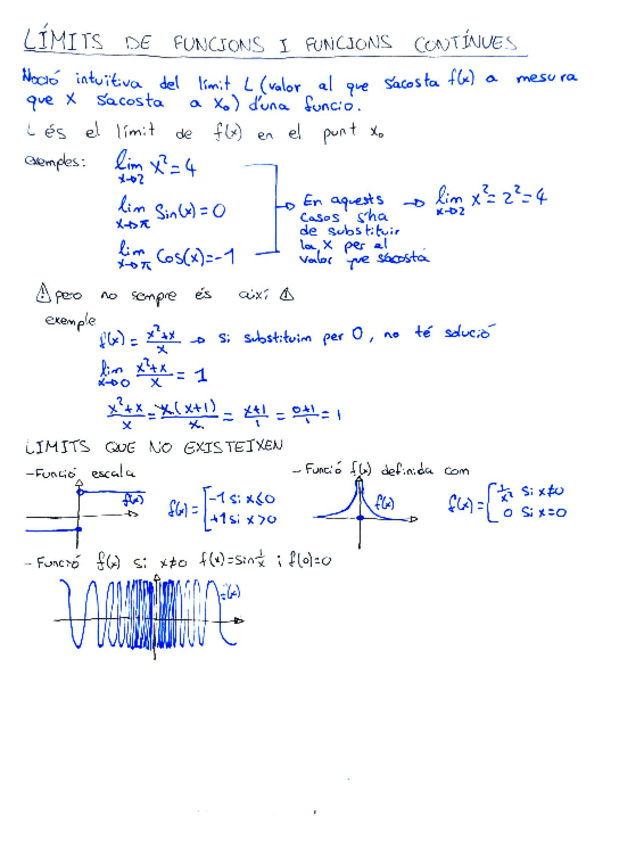 LÍMITS DE FUNCIONS I FUNCIONS CONTÍNUES
Noció intuïtiva del límit L (valor al que s'acosta f(x) a mesura
que x s'acosta a x₀) d'una funcio.
L és el límit de f(x) en el punt x₀
exemples: lim x→2 x² = 4
lim x→π Sin(x) = 0
lim x→π Cos(x) = -1
→ En aquests
casos s'ha
de substituir
la x per el
valor que s'acosta
→ lim x→2 x² = 2² = 4
⚠ pero no sempre és així ⚠
exemple
f(x) = x²+x / x → si substituim per 0, no té solució
lim x→0 x²+x / x = 1
x²+x / x = x(x+1) / x = x+1 / 1 = 0+1 / 1 = 1
LIMITS QUE NO EXISTEIXEN
- Funció escala
f(x)
f(x) = [ -1 si x≤0
+1 si x>0
- Funció f(x) definida com
f(x)
f(x) = [ 1/x² si x≠0
0 si x=0
- Funció f(x) si x≠0 f(x)=Sin 1/x i f(0)=0
f(x)